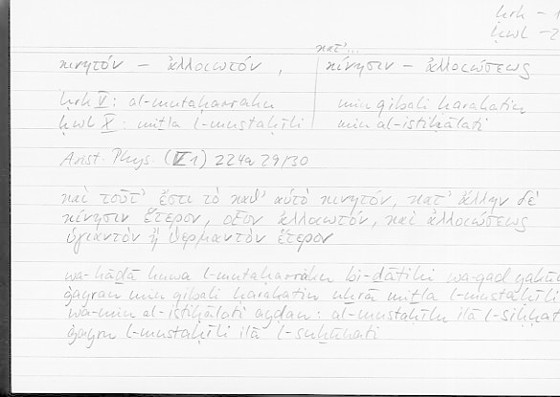 ḥrk – 1
ḥwl – 2
κατ'...
κινητόν – ἀλλοιωτόν, κίνησιν – ἀλλοιώσεως
ḥrk V: al-mutaḥarraku min qibali ḥarakatin
ḥwl X: miṯla l-mustaḥīli min al-istiḥālati
Arist. Phys. (V 1) 224a 29/30
καὶ τοῦτ' ἔστι τὸ καθ' αὑτὸ κινητόν, κατ' ἄλλην δὲ
κίνησιν ἕτερον, οἷον ἀλλοιωτόν, καὶ ἀλλοιώσεως
ὑγιαντὸν ἢ θερμαντὸν ἕτερον
wa-hāḏā huwa l-mutaḥarraku bi-ḏātihi wa-qad yakū
ġayran min qibali ḥarakatin uḫrā miṯla l-mustaḥīli
wa-min al-istiḥālati ayḍan: al-mustaḥīlu ilā l-ṣiḥḥat
ġayru l-mustaḥīli ilā l-suḫūnati